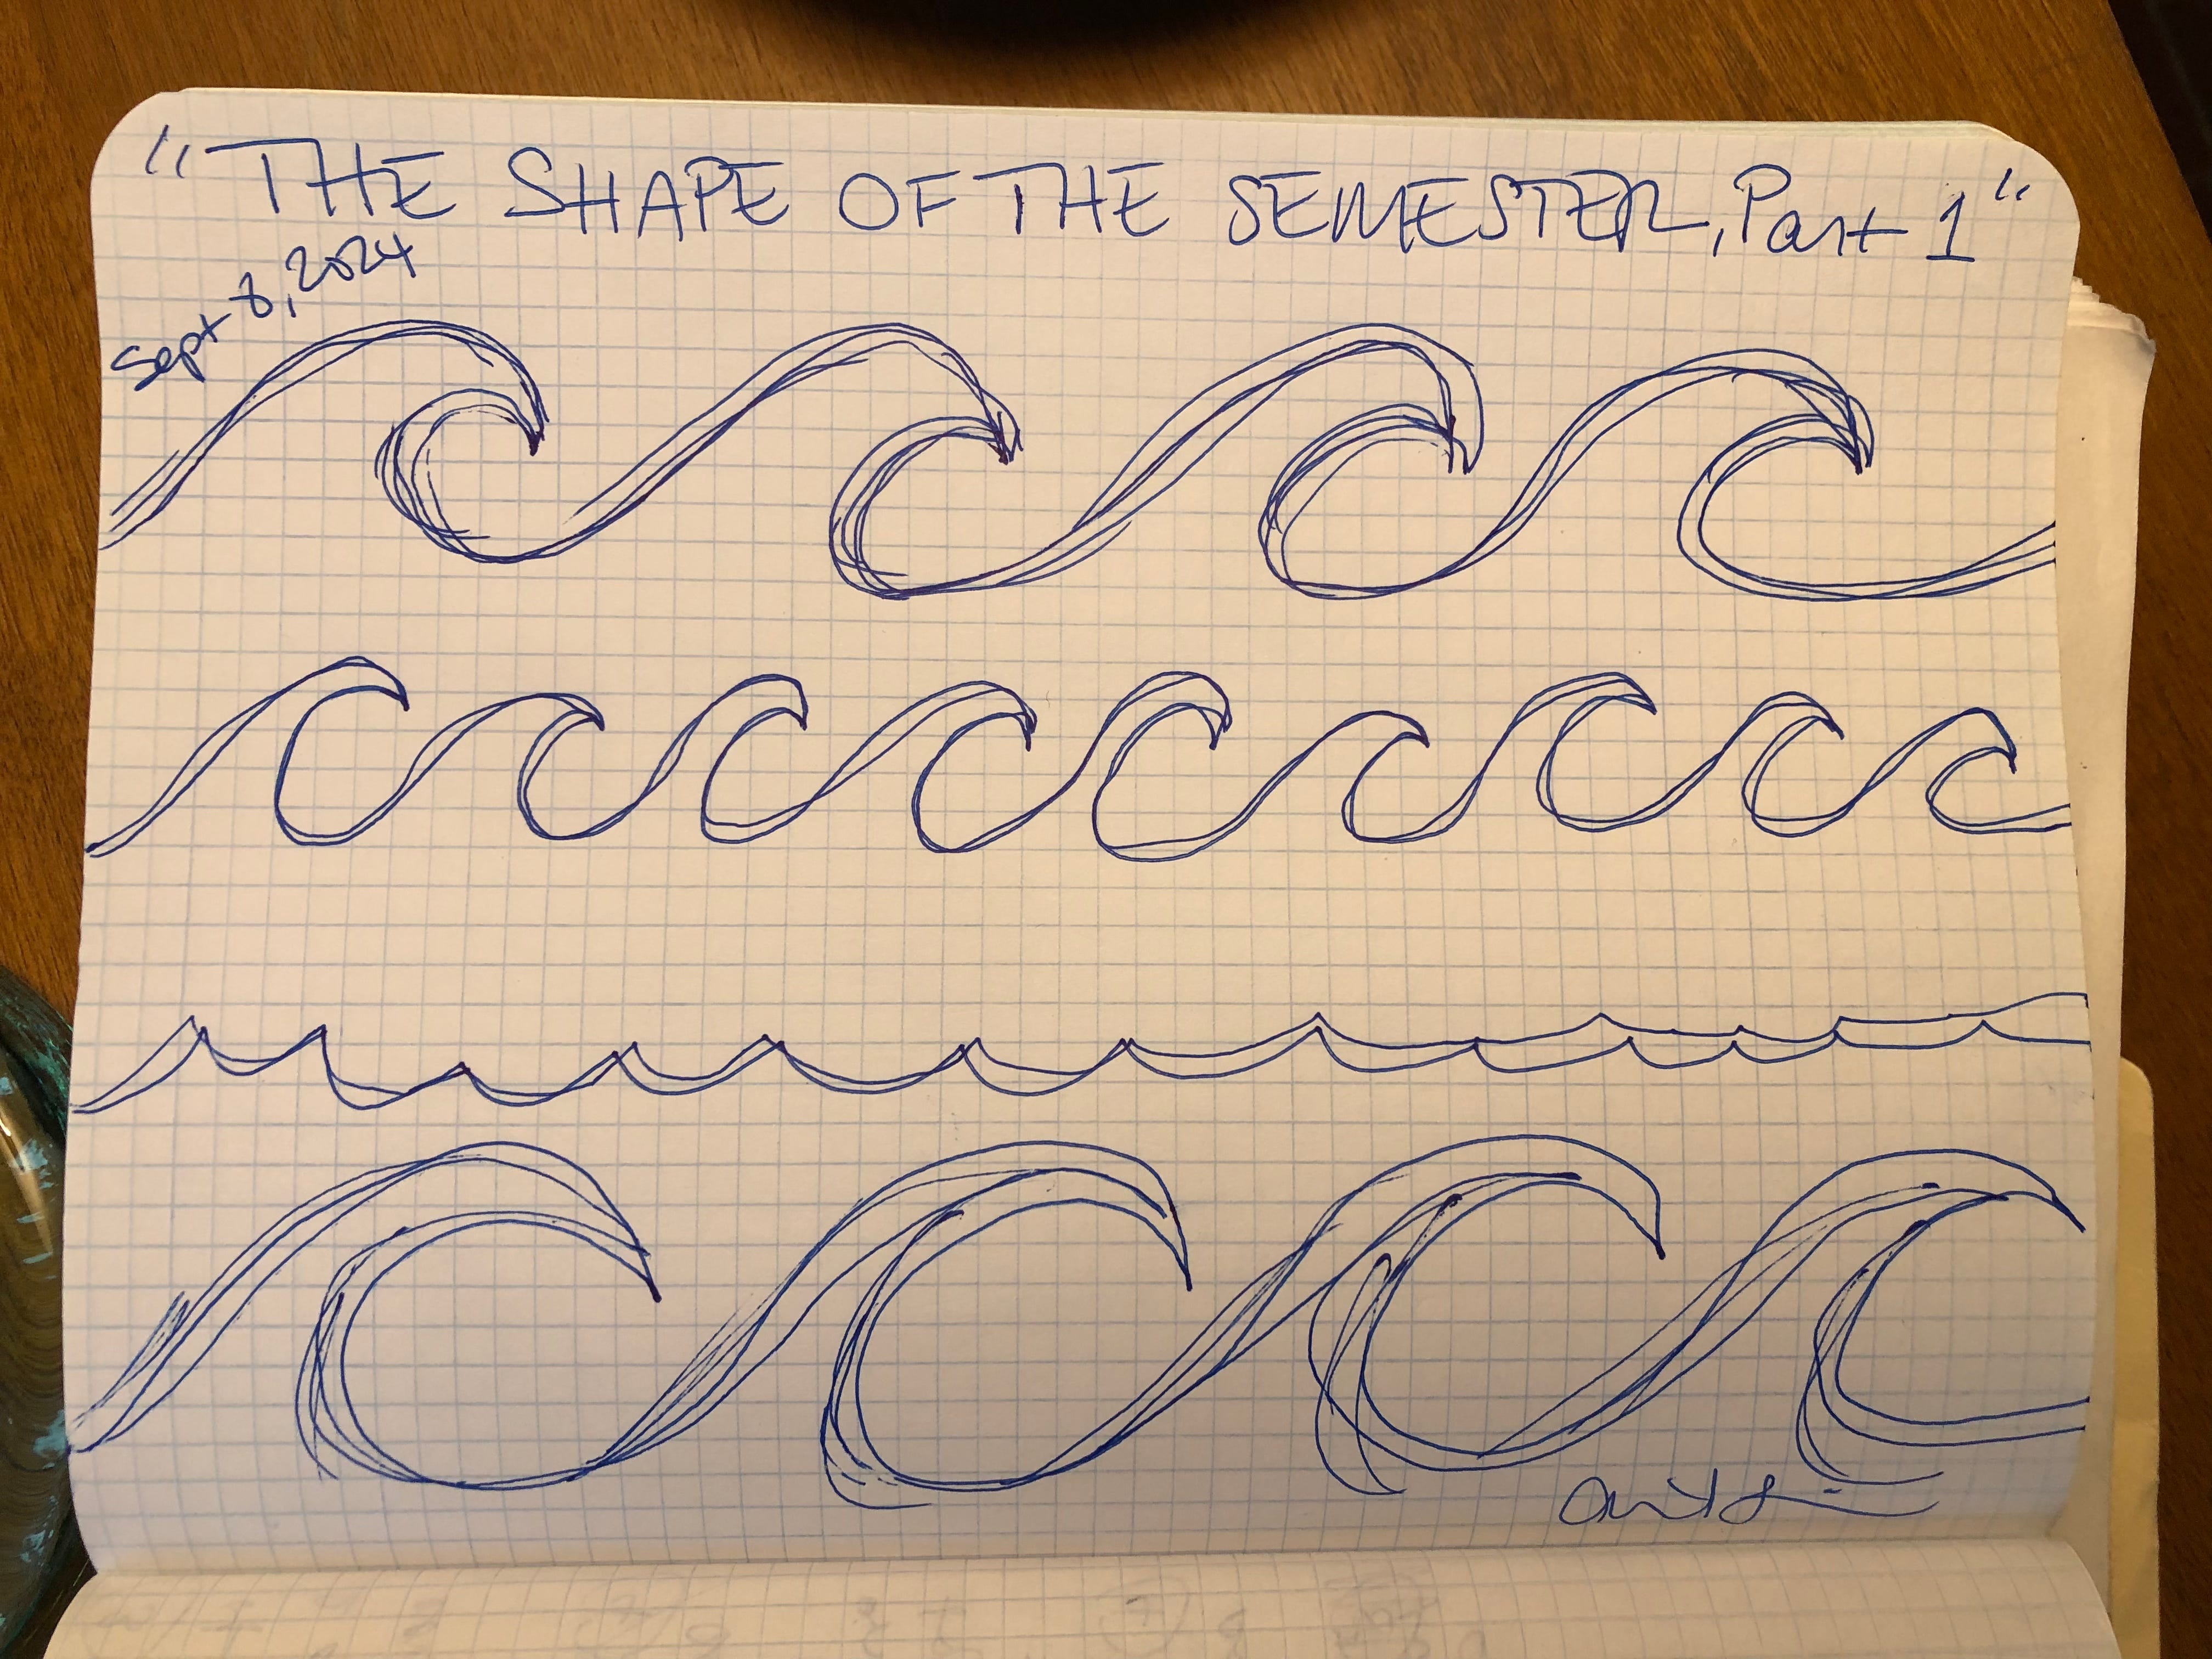 "THE SHAPE OF THE SEMESTER, Part 1"
Sept 8, 2024